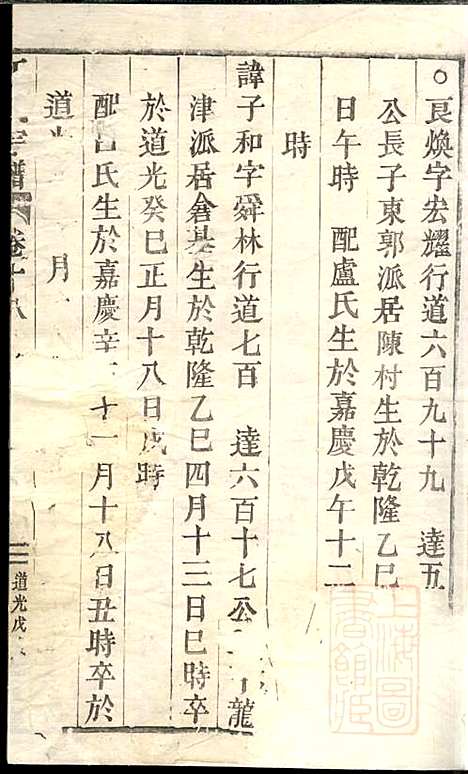 ○良煥字宏耀行道六百九十九 達五
公長子東郭派居陳村生於乾隆乙巳
日午時 配盧氏生於嘉慶戊午十二
時
諱子和字舜林行道七百 達六百十七公 龍
津派居倉基生於乾隆乙巳四月十三日巳時卒
於道光癸巳正月十八日戌時
配 氏生於嘉慶辛 十一月十八日丑時卒於
道 月
宗譜 卷十八
道光戊
上海圖書館藏